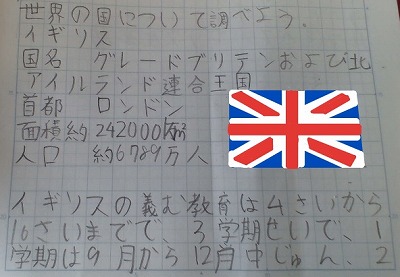 世界の国について調べよう.
イギリス
国名 グレードブリテンおよび北
アイルランド連合王国
首都 ロンドン
面積約242000km²
人口 約6789万人
イギリスの義む教育は4さいから
16さいまでで、3学期せいで、1
学期は9月から12月中じゅん、2